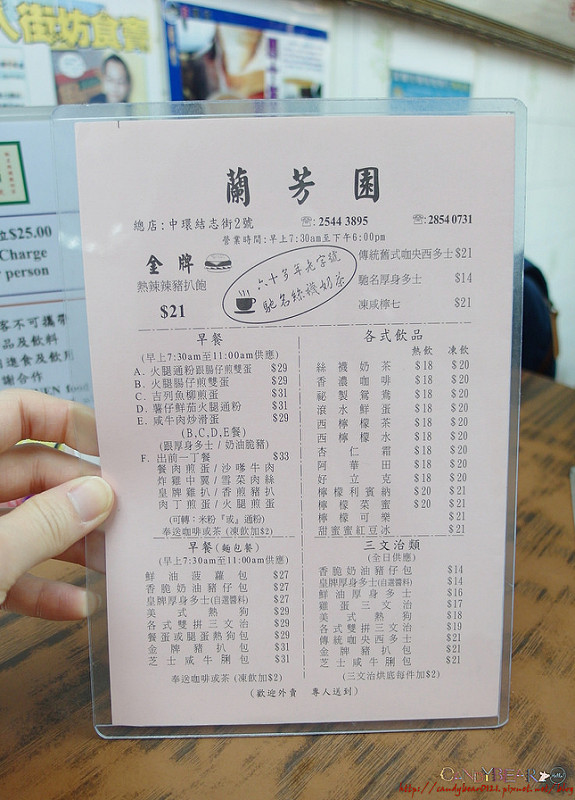 人街坊食賣
位$25.00
Charge
person
客不可攜帶
謝合作
蘭芳園
總店:中環結志街2號 ☏: 2544 3895 ☏: 2854 0731
營業時間:早上7:30am至下午6:00pm
金牌
熱辣辣豬扒飽
$21
六十多年老字號
馳名絲襪奶茶
傳統舊式咖央西多士 $21
馳名厚身多士 $14
凍咸檸七 $21
早餐
(早上7:30am至11:00am供應)
A. 火腿通粉跟腸仔煎雙蛋 $29
B. 火腿腸仔煎雙蛋 $29
C. 吉列魚柳煎蛋 $31
D. 薯仔鮮茄火腿通粉 $31
E. 咸牛肉炒滑蛋 $29
(B,C,D,E餐)
(跟厚身多士/奶油脆豬)
F. 出前一丁餐 $33
餐肉煎蛋/沙嗲牛肉
炸雞中翼/雪菜肉絲
皇牌雞扒/香煎豬扒
肉丁煎蛋/火腿煎蛋
(可轉:米粉『或』通粉)
奉送咖啡或茶 (凍飲加$2)
各式飲品
熱飲 凍飲
絲襪奶茶 $18 $20
香濃咖啡 $18 $20
祕製鴛鴦 $18 $20
滾水鮮蛋 $18 $20
西檸檬茶 $18 $20
西檸檬水 $18 $20
杏仁霜 $18 $20
阿華田 $18 $20
好立克 $18 $20
檸檬利賓納 $20 $21
檸檬菜蜜 $20 $21
檸檬可樂 $21
甜蜜蜜紅豆冰 $21
早餐(麵包餐)
(早上7:30am至11:00am供應)
鮮油菠蘿包 $27
香脆奶油豬仔包 $27
皇牌厚身多士(自選醬料) $27
美式熱狗 $29
各式雙拼三文治 $29
餐蛋或腿蛋熱狗包 $29
金牌豬扒包 $31
芝士咸牛脷包 $31
奉送咖啡或茶 (凍飲加$2)
三文治類
(全日供應)
香脆奶油豬仔包 $14
皇牌厚身多士(自選醬料) $14
鮮油厚身多士 $16
雞蛋三文治 $17
美式熱狗 $18
各式雙拼三文治 $19
傳統咖央西多士 $21
金牌豬扒包 $21
芝士咸牛脷包 $21
(三文治烘底每件加$2)
(歡迎外賣 專人送到)
CANDYBEAR
https://candybear0121.pixnet.net/blog